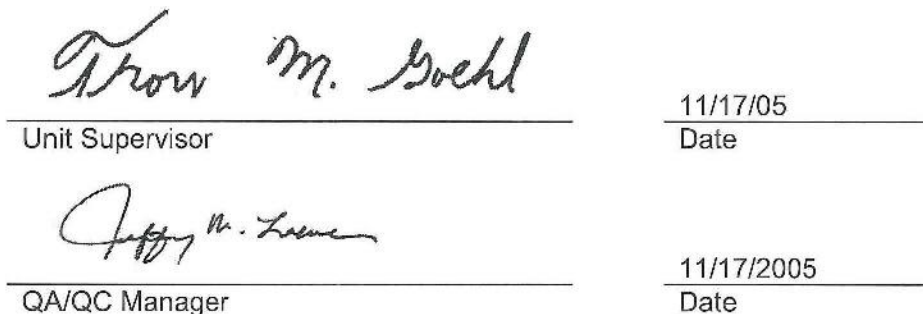 M. Goehl
11/17/05
Unit Supervisor Date
Jeffry M.
11/17/2005
QA/QC Manager Date